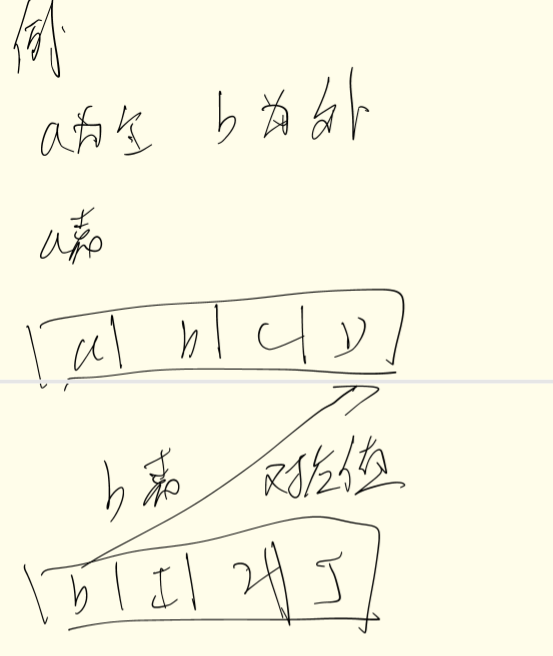 例
a为全 b为外
a表
a | b | c | D
b表 对应值
b | I | 2 | J